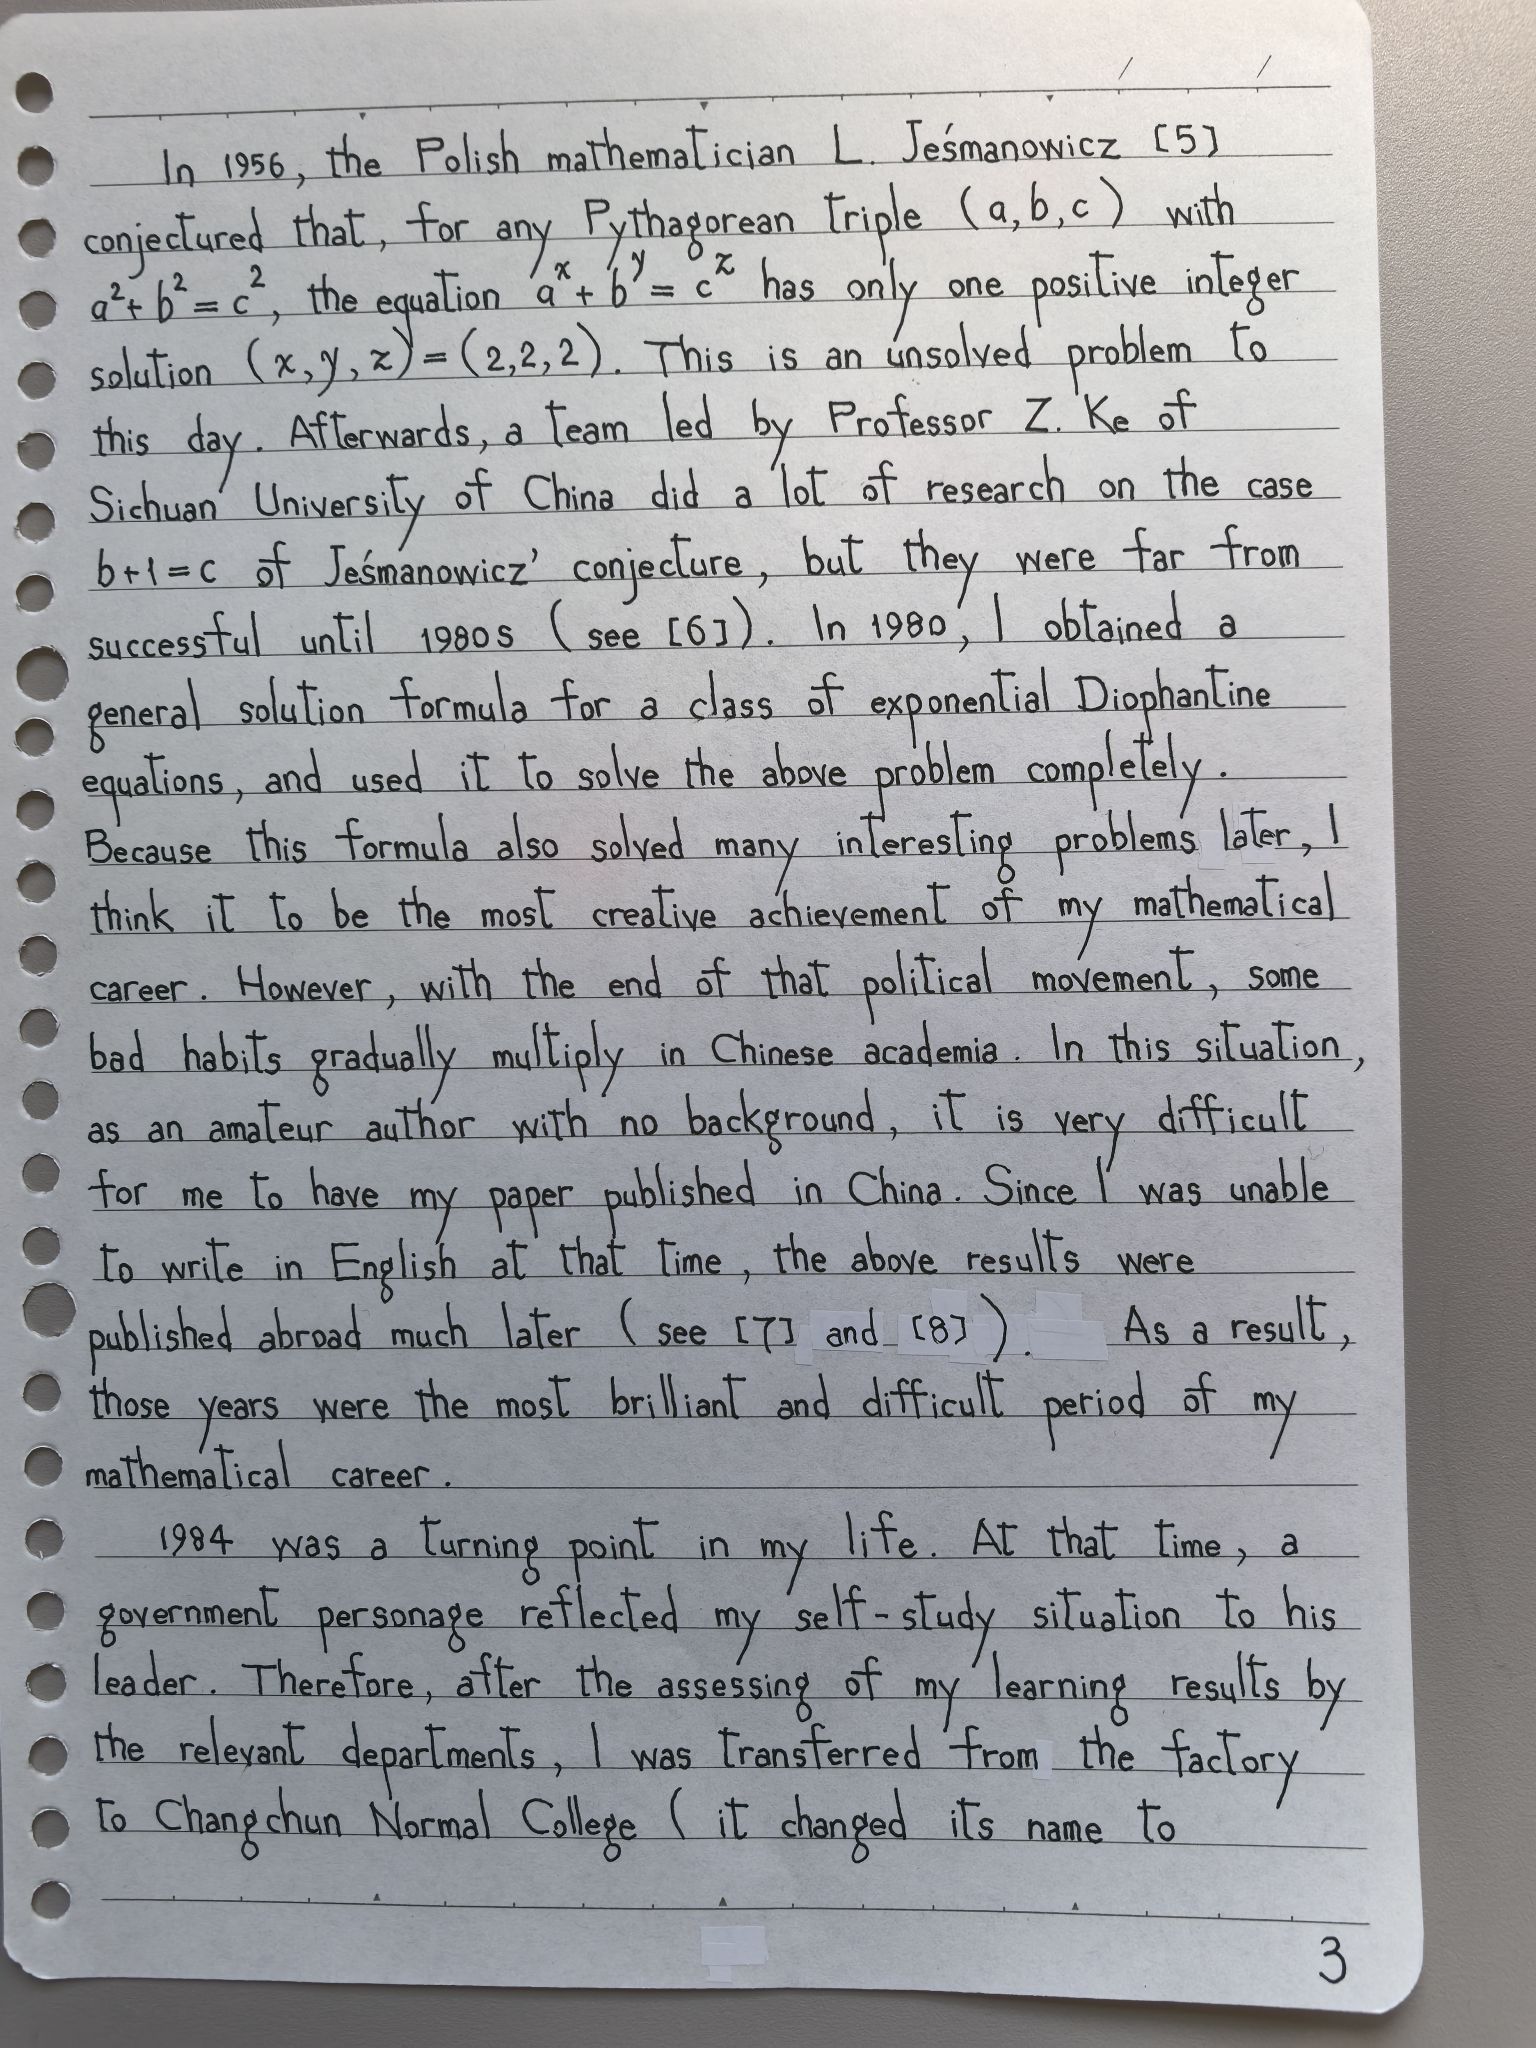 In 1956, the Polish mathematician L. Jeśmanowicz [5]
conjectured that, for any Pythagorean triple (a,b,c) with
a²+b²=c², the equation aˣ+bʸ=cᶻ has only one positive integer
solution (x,y,z)=(2,2,2). This is an unsolved problem to
this day. Afterwards, a team led by Professor Z. Ke of
Sichuan University of China did a lot of research on the case
b+1=c of Jeśmanowicz' conjecture, but they were far from
successful until 1980s (see [6]). In 1980, I obtained a
general solution formula for a class of exponential Diophantine
equations, and used it to solve the above problem completely.
Because this formula also solved many interesting problems later, I
think it to be the most creative achievement of my mathematical
career. However, with the end of that political movement, some
bad habits gradually multiply in Chinese academia. In this situation,
as an amateur author with no background, it is very difficult
for me to have my paper published in China. Since I was unable
to write in English at that time, the above results were
published abroad much later (see [7] and [8]). As a result,
those years were the most brilliant and difficult period of my
mathematical career.
1984 was a turning point in my life. At that time, a
government personage reflected my self-study situation to his
leader. Therefore, after the assessing of my learning results by
the relevant departments, I was transferred from the factory
to Changchun Normal College (it changed its name to
3